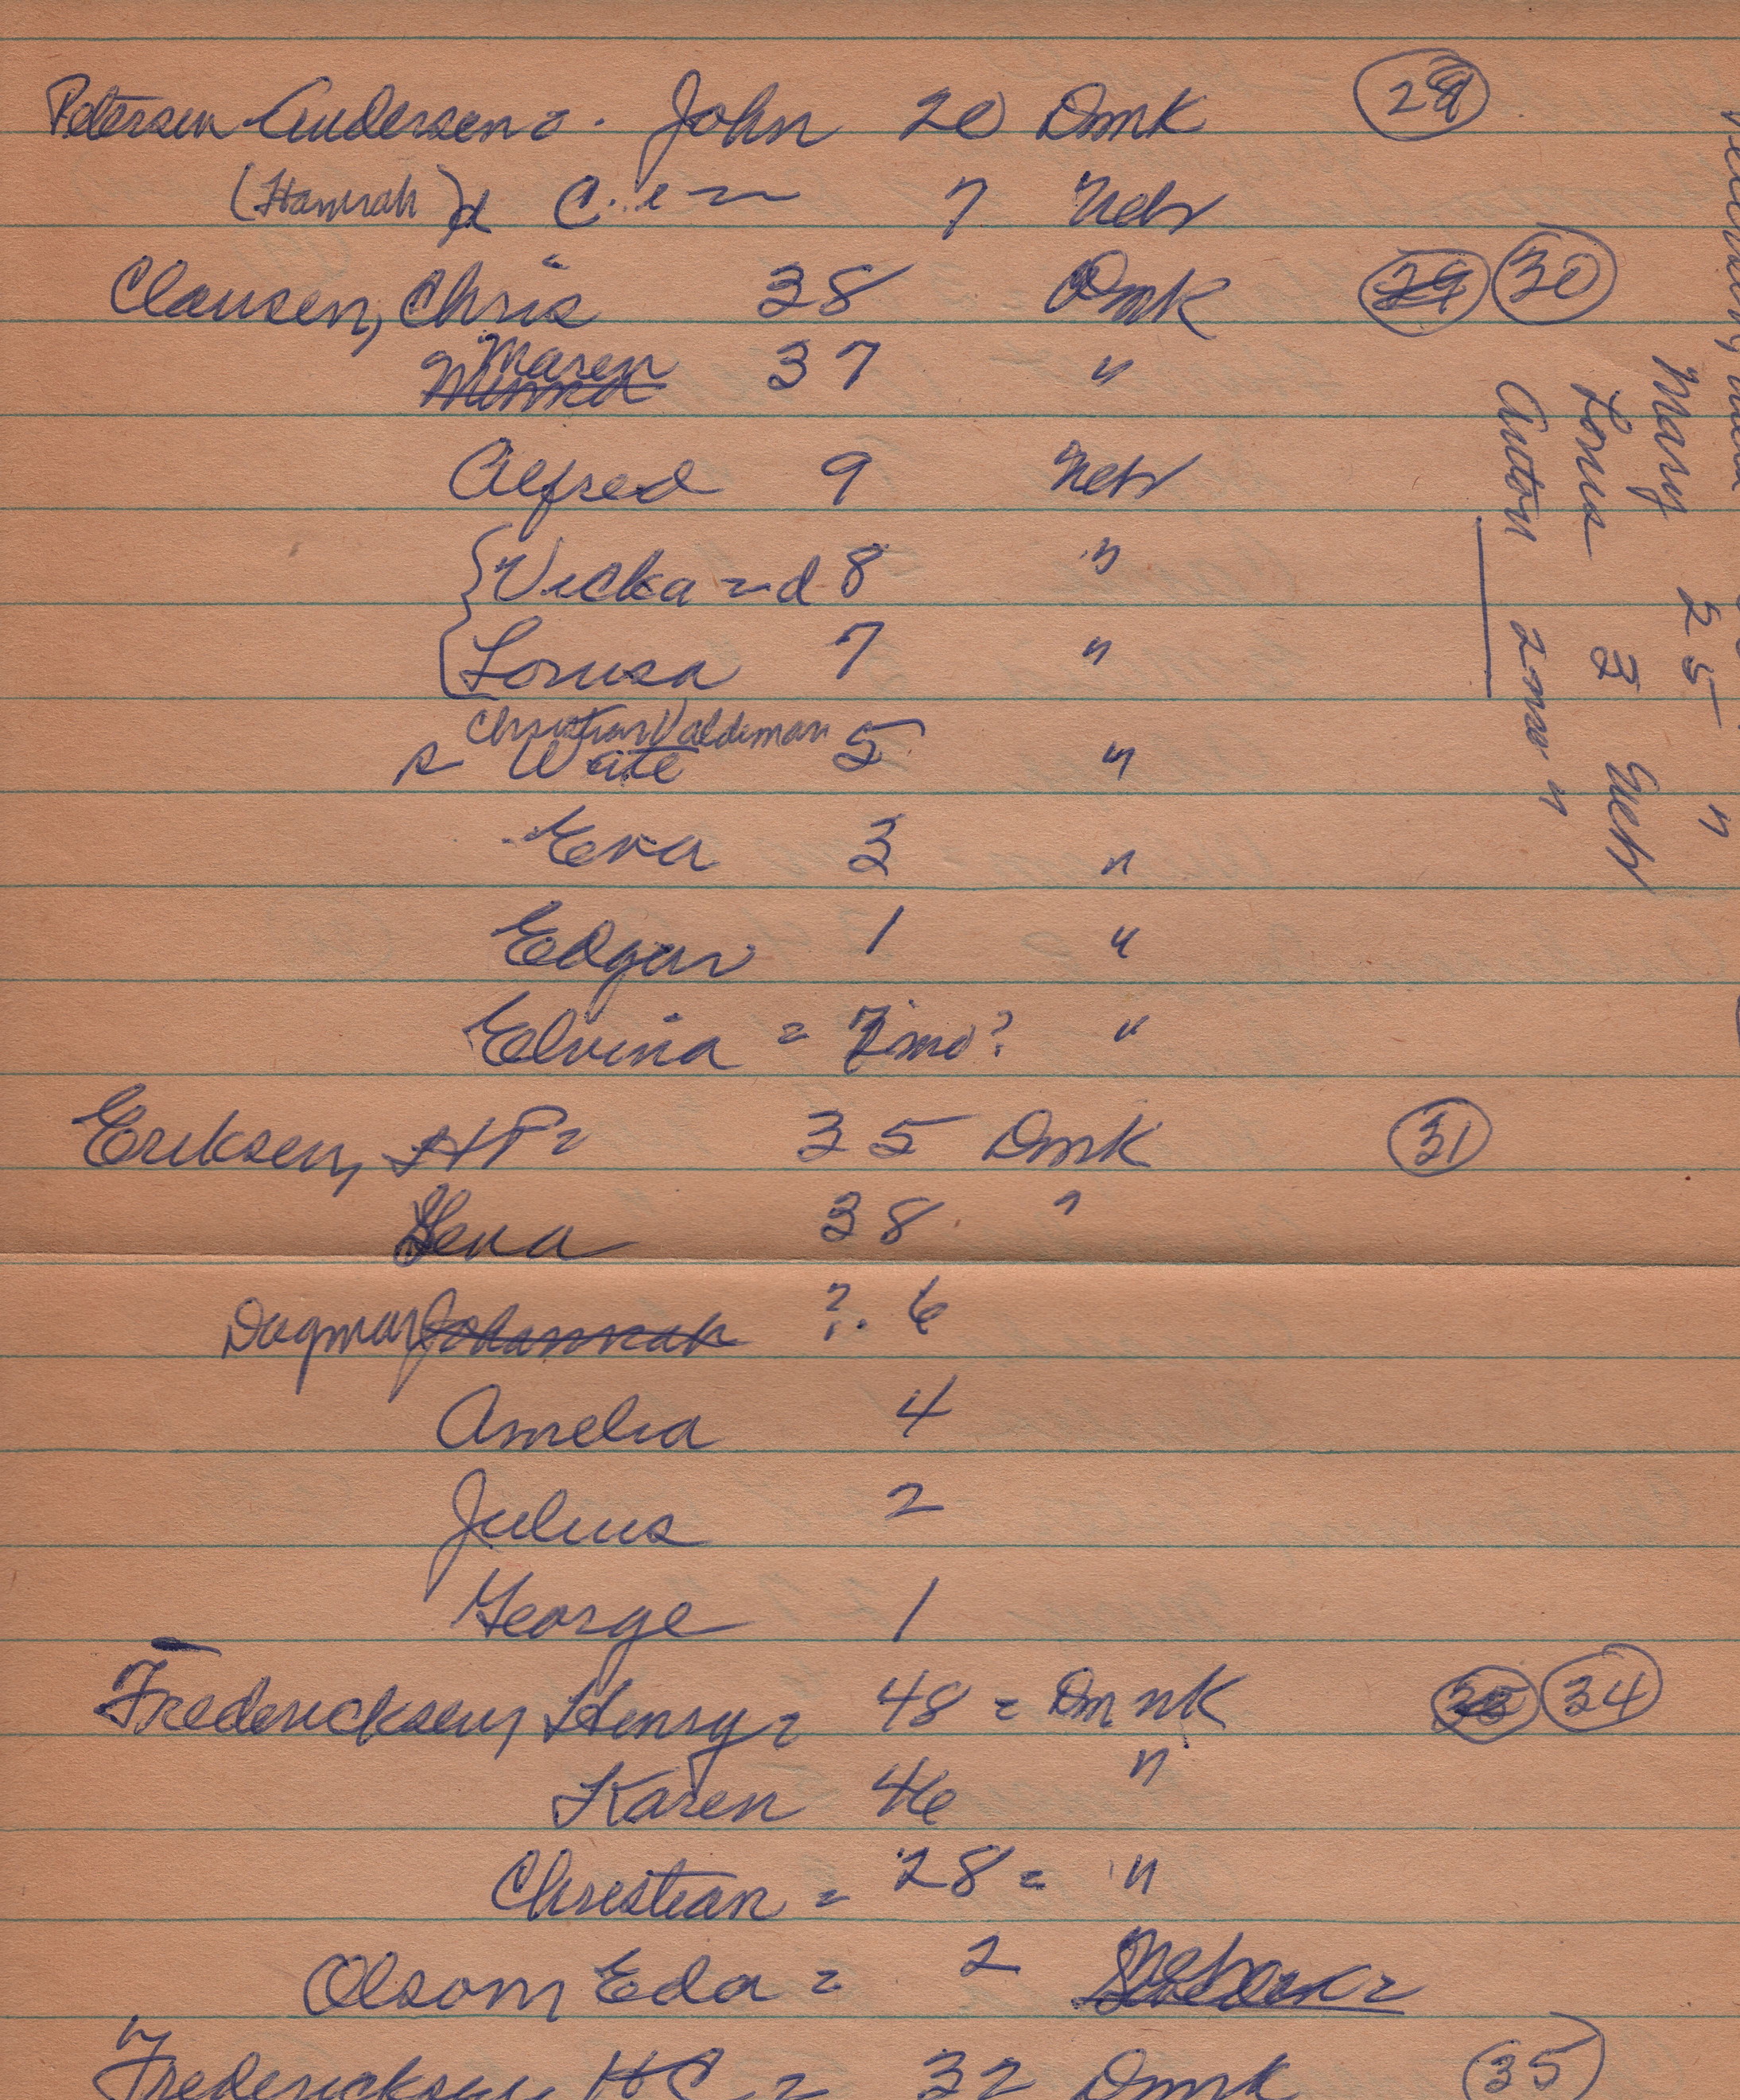 Petersen Andersen = . John 20 Dmk 29
(Hannah) d C. 7 Nebr
Clausen, Chris 38 Dmk 29 30
Maren 37 "
Alfred 9 Nebr
Vicka d 8 "
Lousa 7 "
Christian Valdeman
s Wate 5 "
Eva 3 "
Edgar 1 "
Elvina = mo? "
Eriksen, HP = 35 Dmk 31
Lena 38 "
Dagmar Johannah ? . 6
Amelia 4
Julius 2
George 1
Fredericksen, Henry = 48 = Dmnk 34
Karen 46 "
Christian = 28 = "
Olsom Eda = 2
Fredericksen HC = 32 Dmk 35
Mary 25 "
Lonus 3 Nebr
Anton 2 mo "